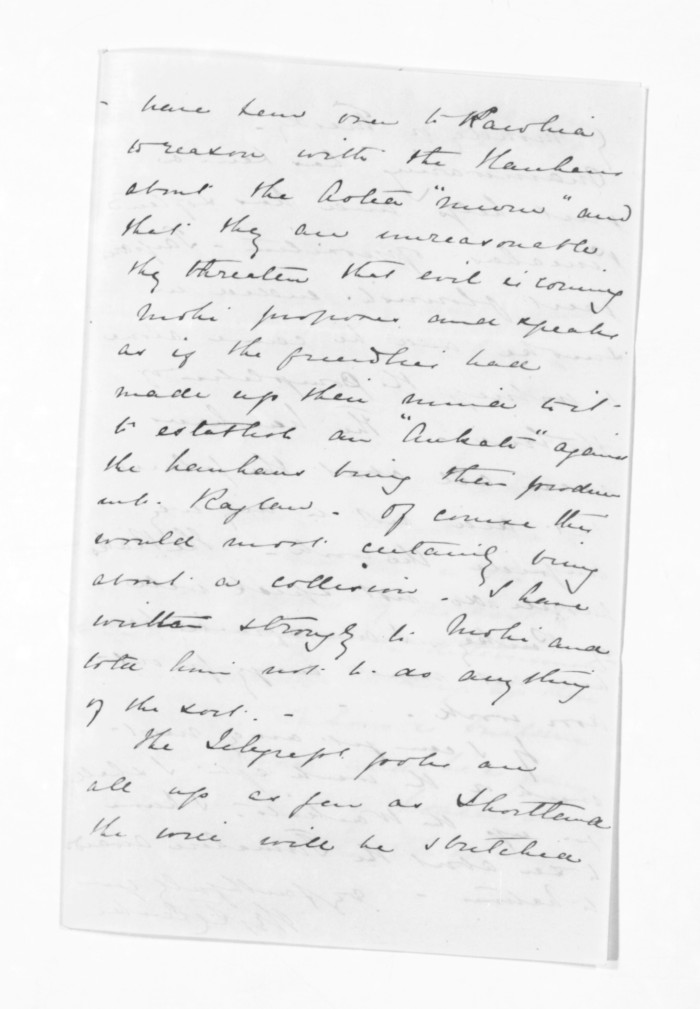 - have been over to Kawhia
to reason with the Hauhaus
about the Aotea "muru" and
that they are unreasonable
they threaten that evil is coming
Mohi proposes and speaks
as if the friendlies had
made up their mind to it -
to establish an "Aukati" against
the hauhaus bring their produce
into Raglan - Of course this
would most certainly bring
about a collision - I have
written strongly to Mohi and
told him not to do anything
of the sort. -
The Telegraph poles are
all up as far as Shortland
the wire will be stretched